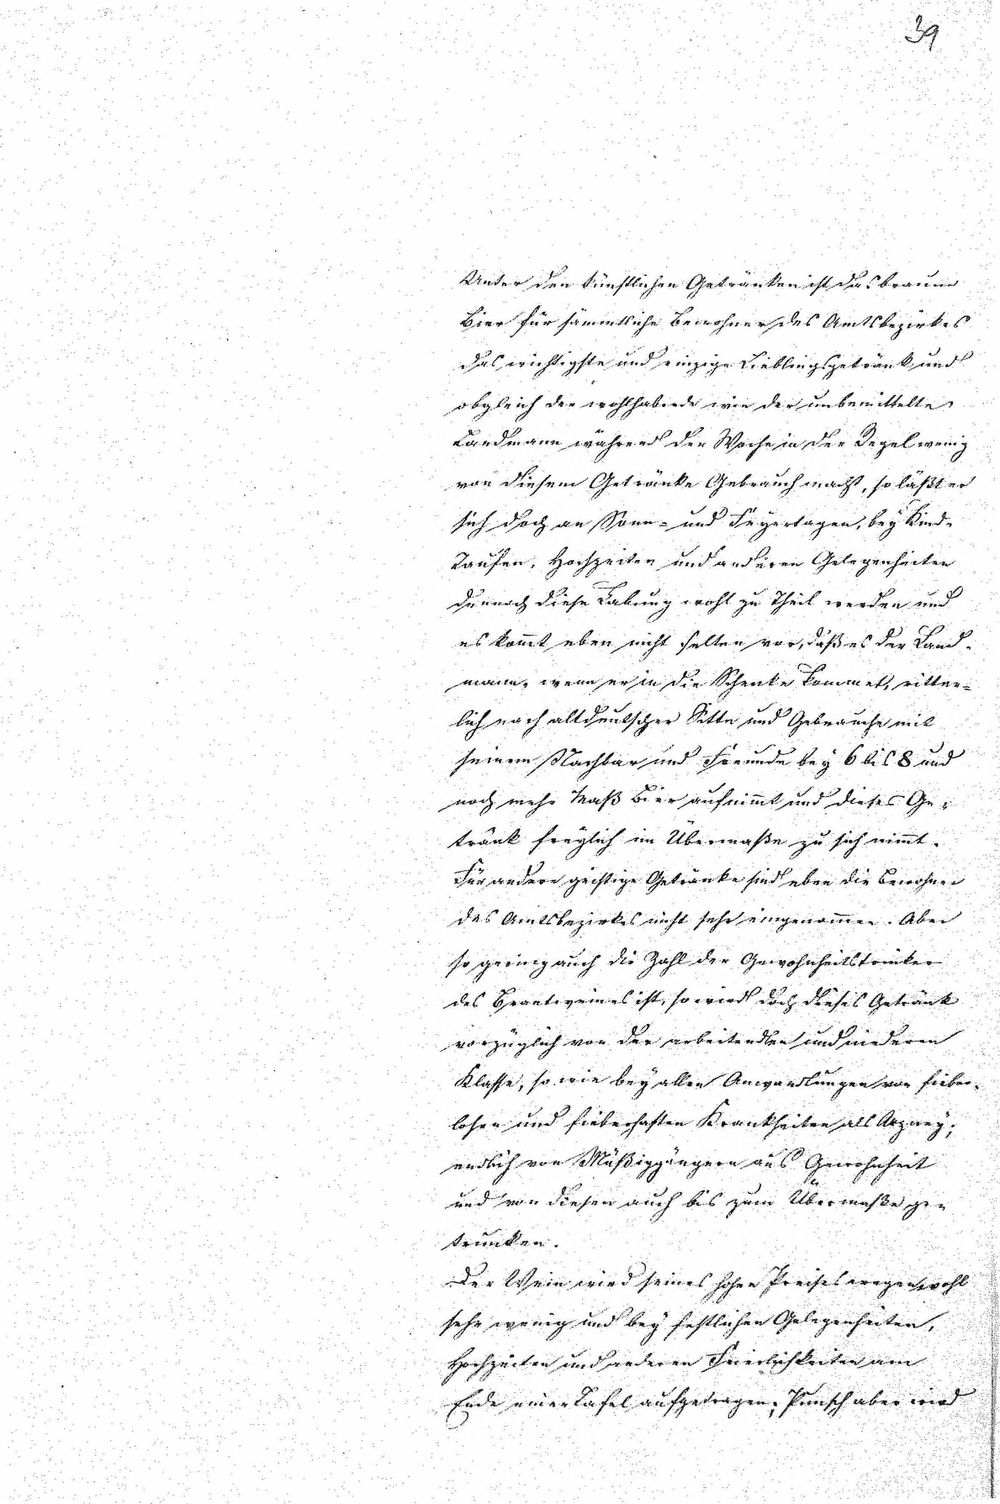 39
Unter den künstlichen Getränken ist das braune
Bier für sämmtliche Bewohner des Amtsbezirkes
das wichtigste und einzige Lieblingsgetränk und
obgleich der wohlhabende wie der unbemittelte
Landmann während der Woche in der Regel wenig
von diesem Getränke Gebrauch macht, so läßt er
sich doch an Sonn- und Feyertagen, bey Kind-
Taufen, Hochzeiten und anderen Gelegenheiten
dennoch diese Labung wohl zu Theil werden und
es kommt eben nicht selten vor, daß es der Land-
mann, wenn er in die Schenke kommet, ritter-
lich nach altdeutscher Sitte und Gebrauche mit
seinem Nachbar und Freunde bey 6 bis 8 und
noch mehr Maß Bier aufnimmt und dieses Ge-
tränk freylich im Übermaße zu sich nimmt.
Für andere geistige Getränke sind eben die Bewohner
des Amtsbezirkes nicht sehr eingenommen. Aber
so gering auch die Zahl der Gewohnheitstrinker
des Brantweines ist, so wird doch dieses Getränk
vorzüglich von der arbeitenden und niederen
Klasse, so wie bey allen Anwandlungen von fieber-
losen und fieberhaften Krankheiten als Arzney,
endlich von Müßiggängern aus Gewohnheit
und von diesen auch bis zum Übermaße ge-
trunken.
Der Wein wird seines hohen Preises wegen wohl
sehr wenig und bey festlichen Gelegenheiten,
Hochzeiten und anderen Feierlichkeiten am
Ende einer Tafel aufgetragen, Punsch aber wird